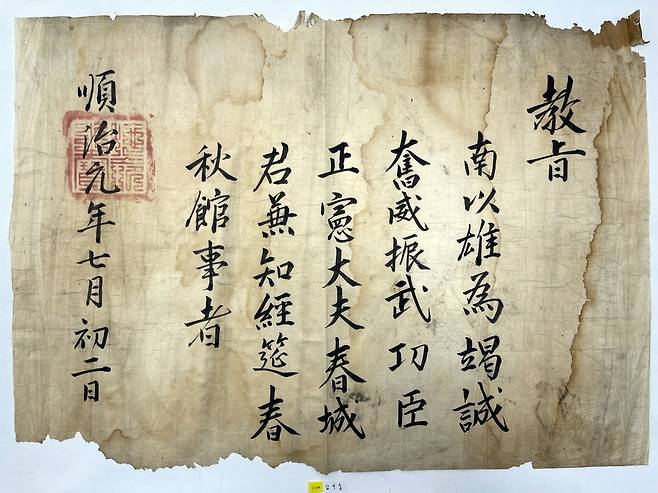 敎旨
南以雄為竭誠
奮威振武功臣
正憲大夫春城
君兼知經筵春
秋館事者
順治元年七月初二日